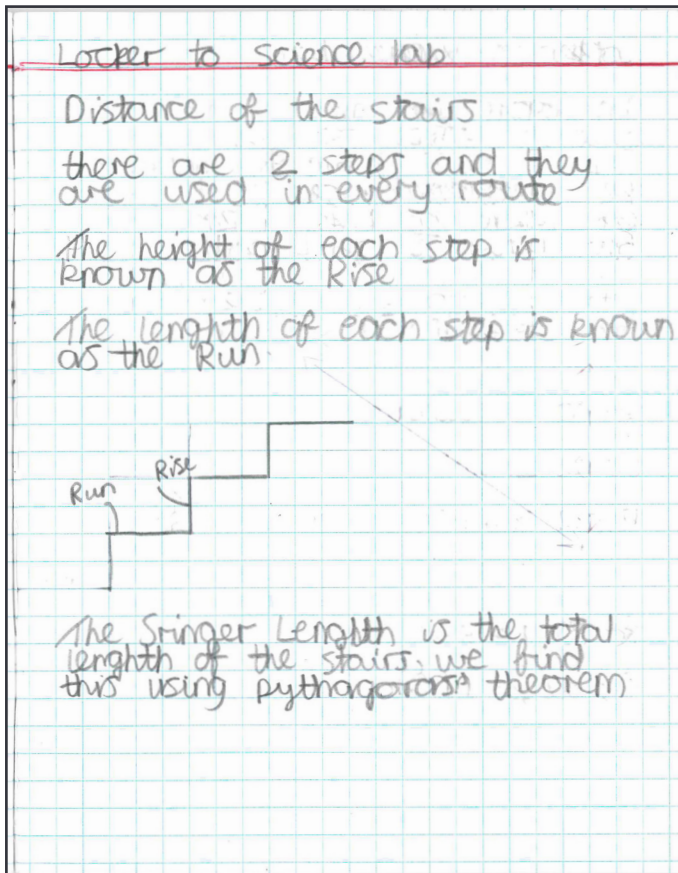 Locker to science lab
Distance of the stairs
there are 2 steps and they
are used in every route
The height of each step is
known as the Rise
The lenghth of each step is known
as the Run.
Rise
Run
The Sringer Lenghth is the total
lenghth of the stairs. we find
this using pythagoras's theorem